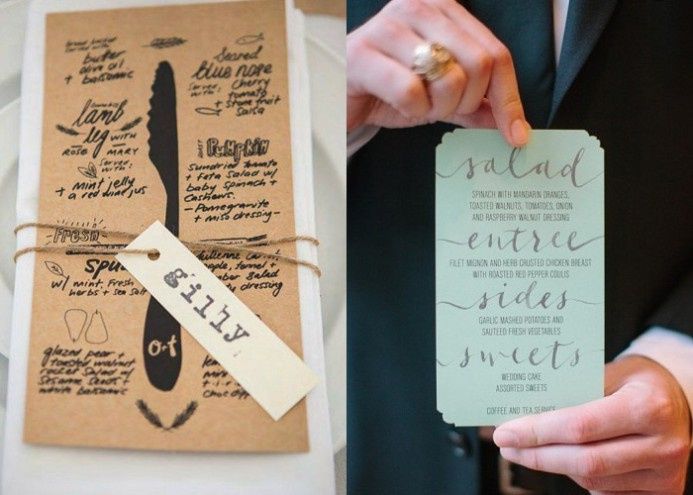 butter
olive oil
+ balsamic
Seared
blue nose
Served with:
Cherry
tomato
+ stone fruit
Salsa
lamb
leg WITH
ROSE MARY
Served with:
+ mint jelly
a red wine jus
Pumpkin
Sundried tomato
+ feta Salad w/
baby Spinach +
Cashews.
- Pomegranate
+ miso dressing -
Fresh
w/ mint. Fresh
herbs + Sea Salt
dressing
gilly
o+t
glazed pear +
toasted walnut
rocket Salad w/
Sesame Seeds +
white balsamic
salad
SPINACH WITH MANDARIN ORANGES,
TOASTED WALNUTS, TOMATOES, ONION
AND RASPBERRY WALNUT DRESSING
entree
FILET MIGNON AND HERB CRUSTED CHICKEN BREAST
WITH ROASTED RED PEPPER COULIS
sides
GARLIC MASHED POTATOES AND
SAUTEED FRESH VEGETABLES
sweets
WEDDING CAKE
ASSORTED SWEETS
COFFEE AND TEA SERVICE